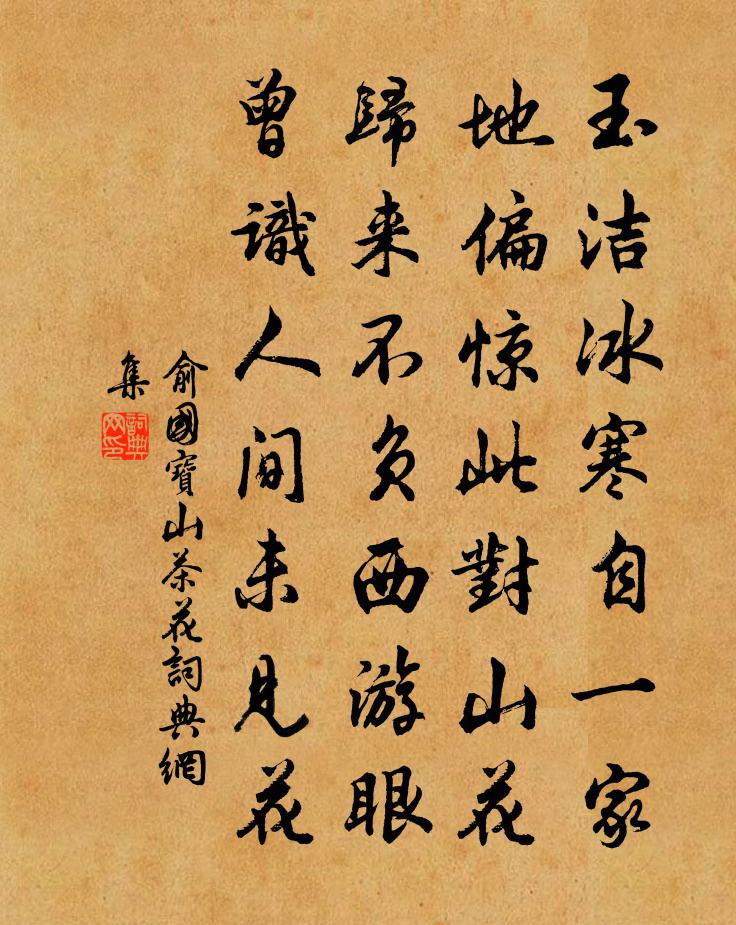 玉洁冰寒自一家
地偏惊此對山花
歸来不负西游眼
曾識人间未見花
俞國寶山茶花詞典網
集
詞典
网印